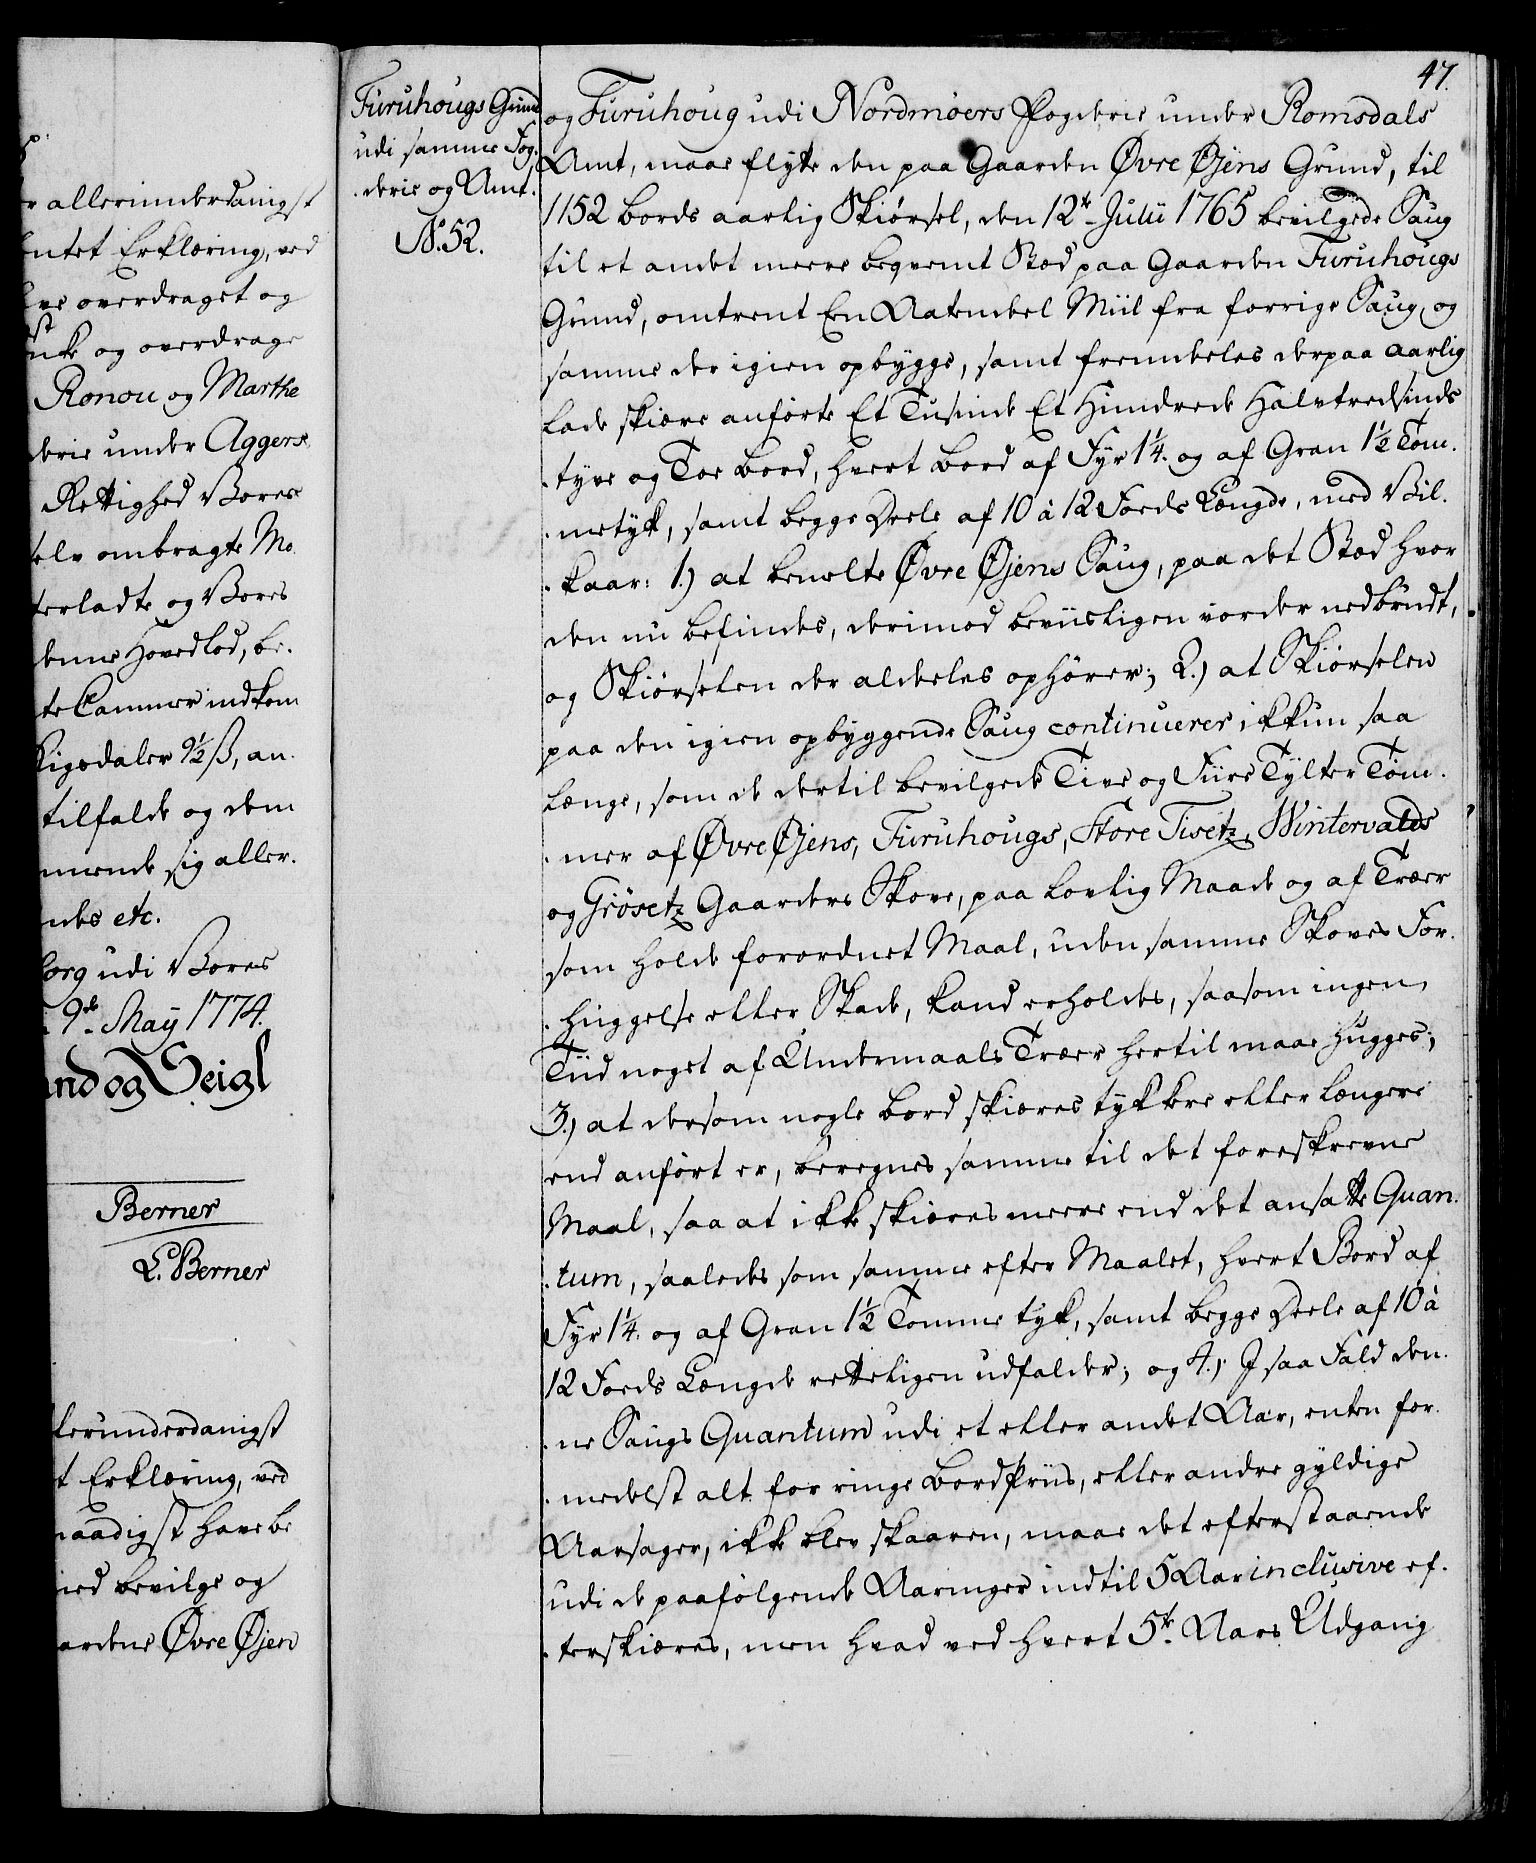 r allerunderdanigst
ntet Erklæring, ved
ve overdraget og
nke og overdrage
Ronou og Marthe
derie under Aggers
Rettighed Vores
selv ombragte Mo.
terladte og Vores
denne Hovedlod, be.
te Cammer indkom
Rigsdaler 9½ ß, an.
tilfalde og dem
mende sig aller.
ndes etc.
borg udi Vores
9de May 1774.
and og Seigl
Berner
L. Berner
lerunderdanigst
t Erklæring, ved
naadigst have be
ned bevilge og
ardene Øvre Øjen
Furuhougs Grund
udi samme Fog.
derie og Amt.
No. 52.
47.
og Furuhoug udi Nordmøers Fogderie under Romsdals
Amt, maae flytte den paa Gaarden Øvre Øjens Grund, til
1152 bords aarlig Skiørsel, den 12te Julii 1765 bevilgede Saug
til et andet meere beqvemt Stæd paa Gaarden Furuhougs
Grund, omtrent Een Aatendeel Miil fra forrige Saug, og
samme der igien opbygge, samt fremdeles derpaa aarlig
lade skiære anførte Et Tusinde Et Hundrede Halvtredsinds
tyve og Toe bord, hvert bord af Fyr 1¼. og af Gran 1½ Tom.
metyk, samt begge Deele af 10 à 12 Foeds Længde, med Vil.
kaar: 1.) at bemelte Øvre Øjens Saug, paa det Stæd hvor
den nu befindes, derimod beviisligen vorder nedbrudt,
og Skiørselen der aldeeles ophører; 2.) at Skiørselen
paa den igien opbyggende Saug continuerer ikkun saa
længe, som de dertil bevilgede Tive og Fiire Tylter Tøm.
mer af Øvre Øjens, Furuhougs, Store Tisetz, Wintervalds
og Grøsetz Gaarders Skove, paa lovlig Maade og af Træer
som holde forordnet Maal, uden samme Skoves For.
huggelse eller Skade, kand erholdes, saasom ingen
Tiid noget af Undermaals Træer hertil maae hugges;
3.) at dersom nogle bord skiæres tykkere eller længere
end anført er, beregnes samme til det foreskrevne
Maal, saa at ikke skiæres meere end det ansatte Quan.
tum, saaledes som samme efter Maalet, hvert Bord af
Fyr 1¼. og af Gran 1½ Tomme tyk, samt begge Deele af 10 à
12 Foeds Længde retteligen udfalder; og 4.) I saa Fald den.
ne Saugs Quantum udi et eller andet Aar, enten for.
medelst alt for ringe bordpriis, eller andre gyldige
Aarsager, ikke blev skaaren, maae det efterstaaende
udi de paafølgende Aaringer indtil 5 Aar inclusive ef.
terskiæres, men hvad ved hvert 5te Aars Udgang